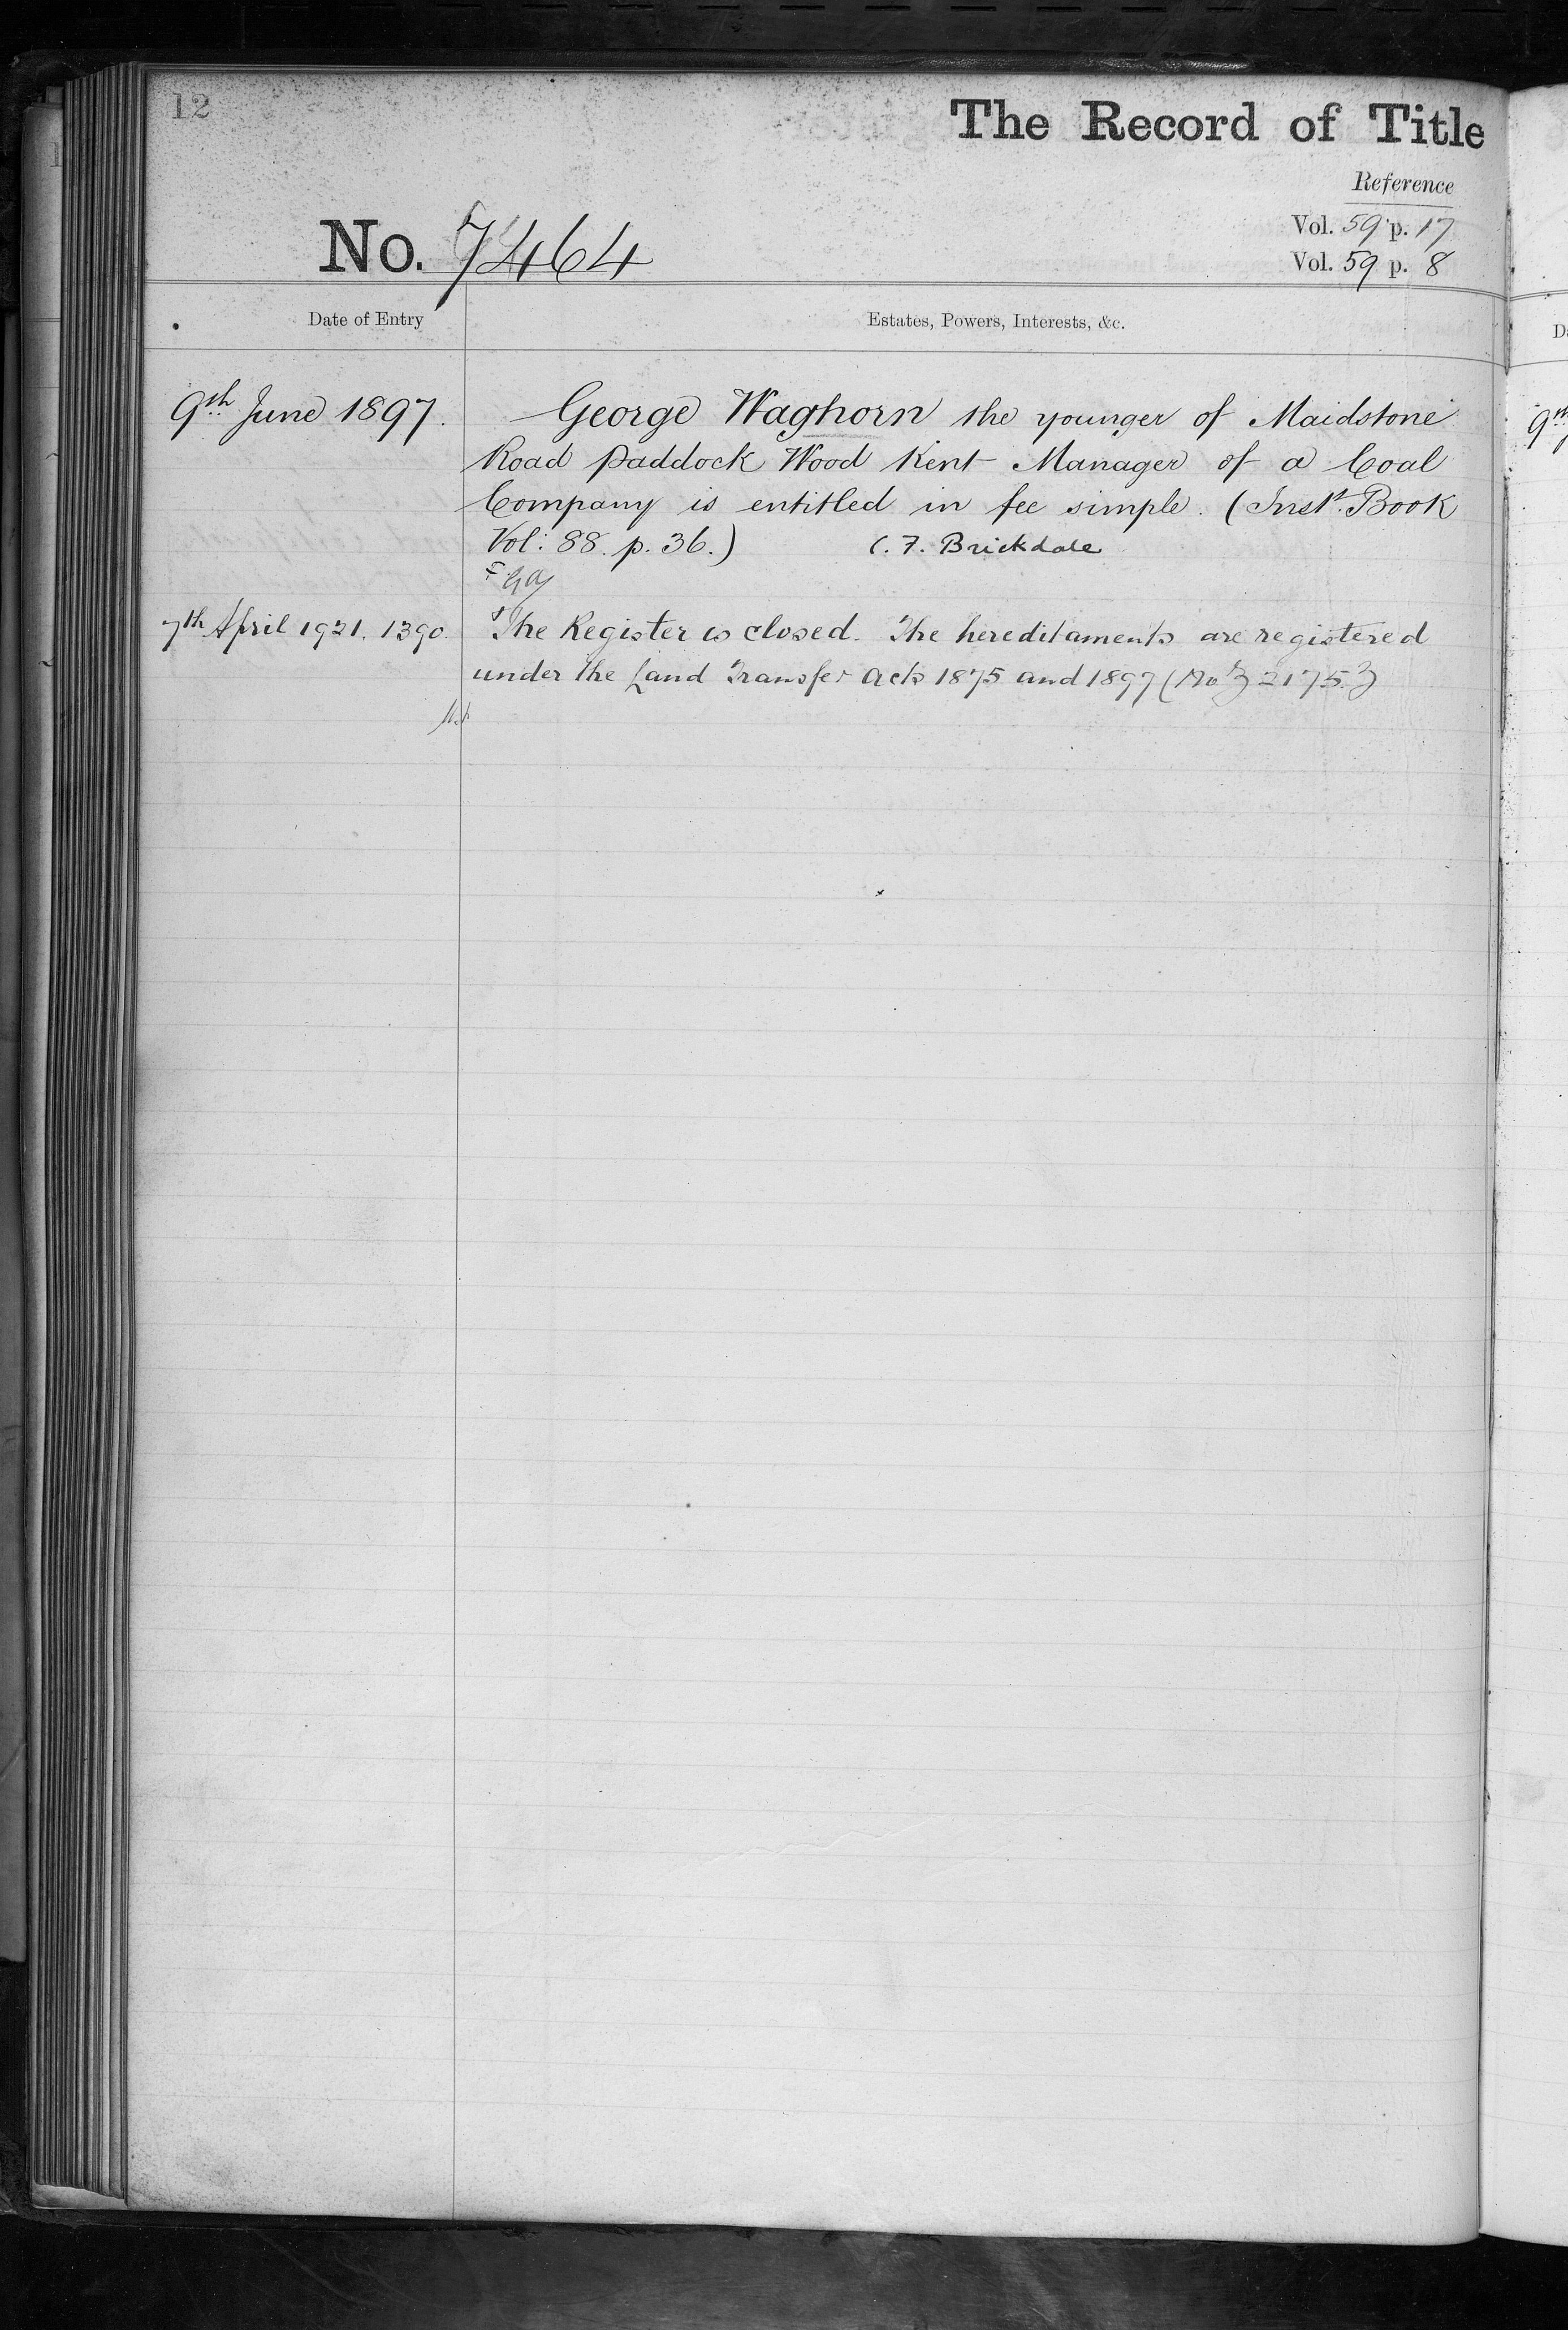 12
The Record of Title
Reference
Vol. 59 p. 17
No. 7464
Vol. 59 p. 8
Date of Entry
Estates, Powers, Interests, &c.
9th June 1897.
George Waghorn the younger of Maidstone
Road Paddock Wood Kent Manager of a Coal
Company is entitled in fee simple. (Inst. Book
Vol: 88. p. 36.) C. F. Brickdale
7th April 1921. 1390.
The Register is closed. The hereditaments are registered
under the Land Transfer Acts 1875 and 1897